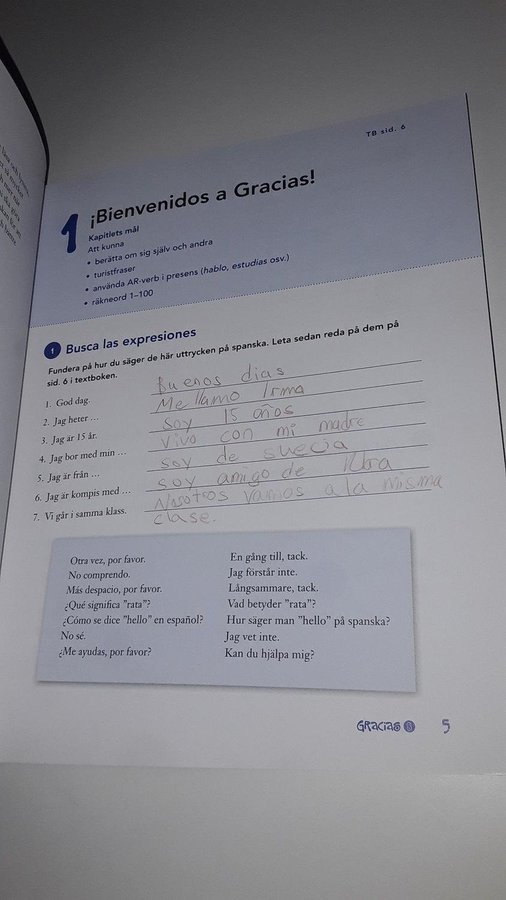 TB sid. 6
1
¡Bienvenidos a Gracias!
Kapitlets mål
Att kunna
• berätta om sig själv och andra
• turistfraser
• använda AR-verb i presens (hablo, estudias osv.)
• räkneord 1–100
1 Busca las expresiones
Fundera på hur du säger de här uttrycken på spanska. Leta sedan reda på dem på
sid. 6 i textboken.
1. God dag. Buenos dias
2. Jag heter ... Me llamo Irma
3. Jag är 15 år. soy 15 años
4. Jag bor med min ... vivo con mi madre
5. Jag är från ... soy de suecia
6. Jag är kompis med ... soy amigo de
7. Vi går i samma klass. Nosotros vamos a la misma
clase.
Otra vez, por favor. En gång till, tack.
No comprendo. Jag förstår inte.
Más despacio, por favor. Långsammare, tack.
¿Qué significa "rata"? Vad betyder "rata"?
¿Cómo se dice "hello" en español? Hur säger man "hello" på spanska?
No sé. Jag vet inte.
¿Me ayudas, por favor? Kan du hjälpa mig?
Gracias 5